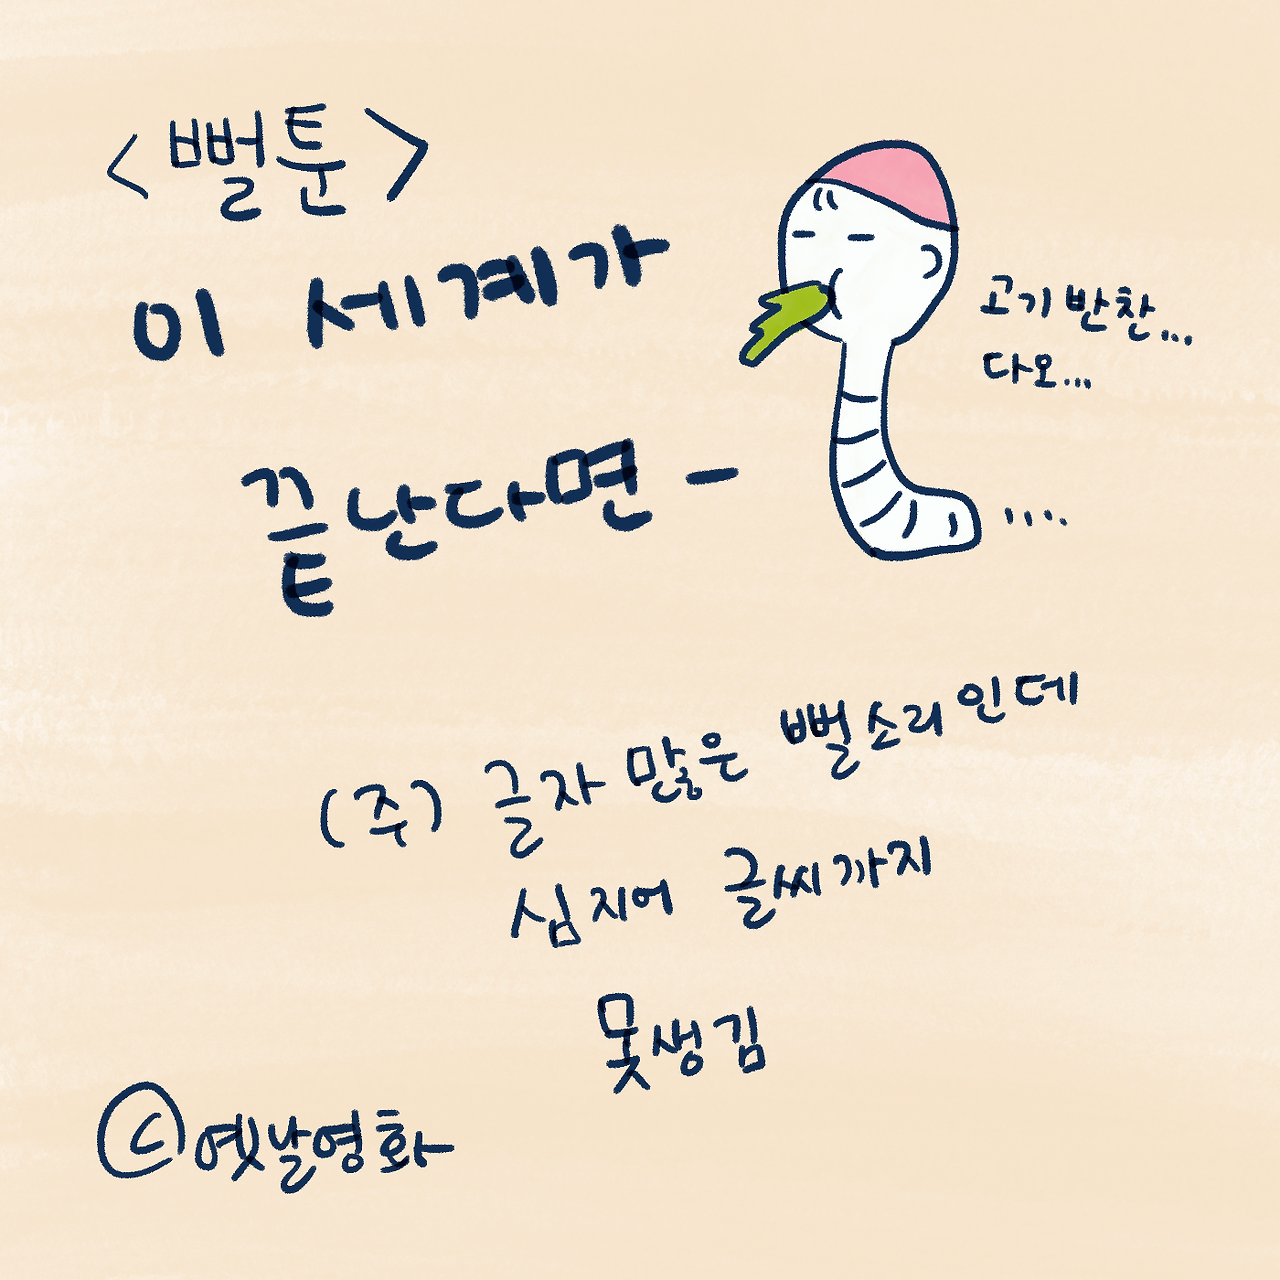 <뻘툰>
이 세계가
끝난다면 -
고기반찬...
다오...
....
(주) 글자 많은 뻘소리인데
심지어 글씨까지
못생김
ⓒ옛날영화